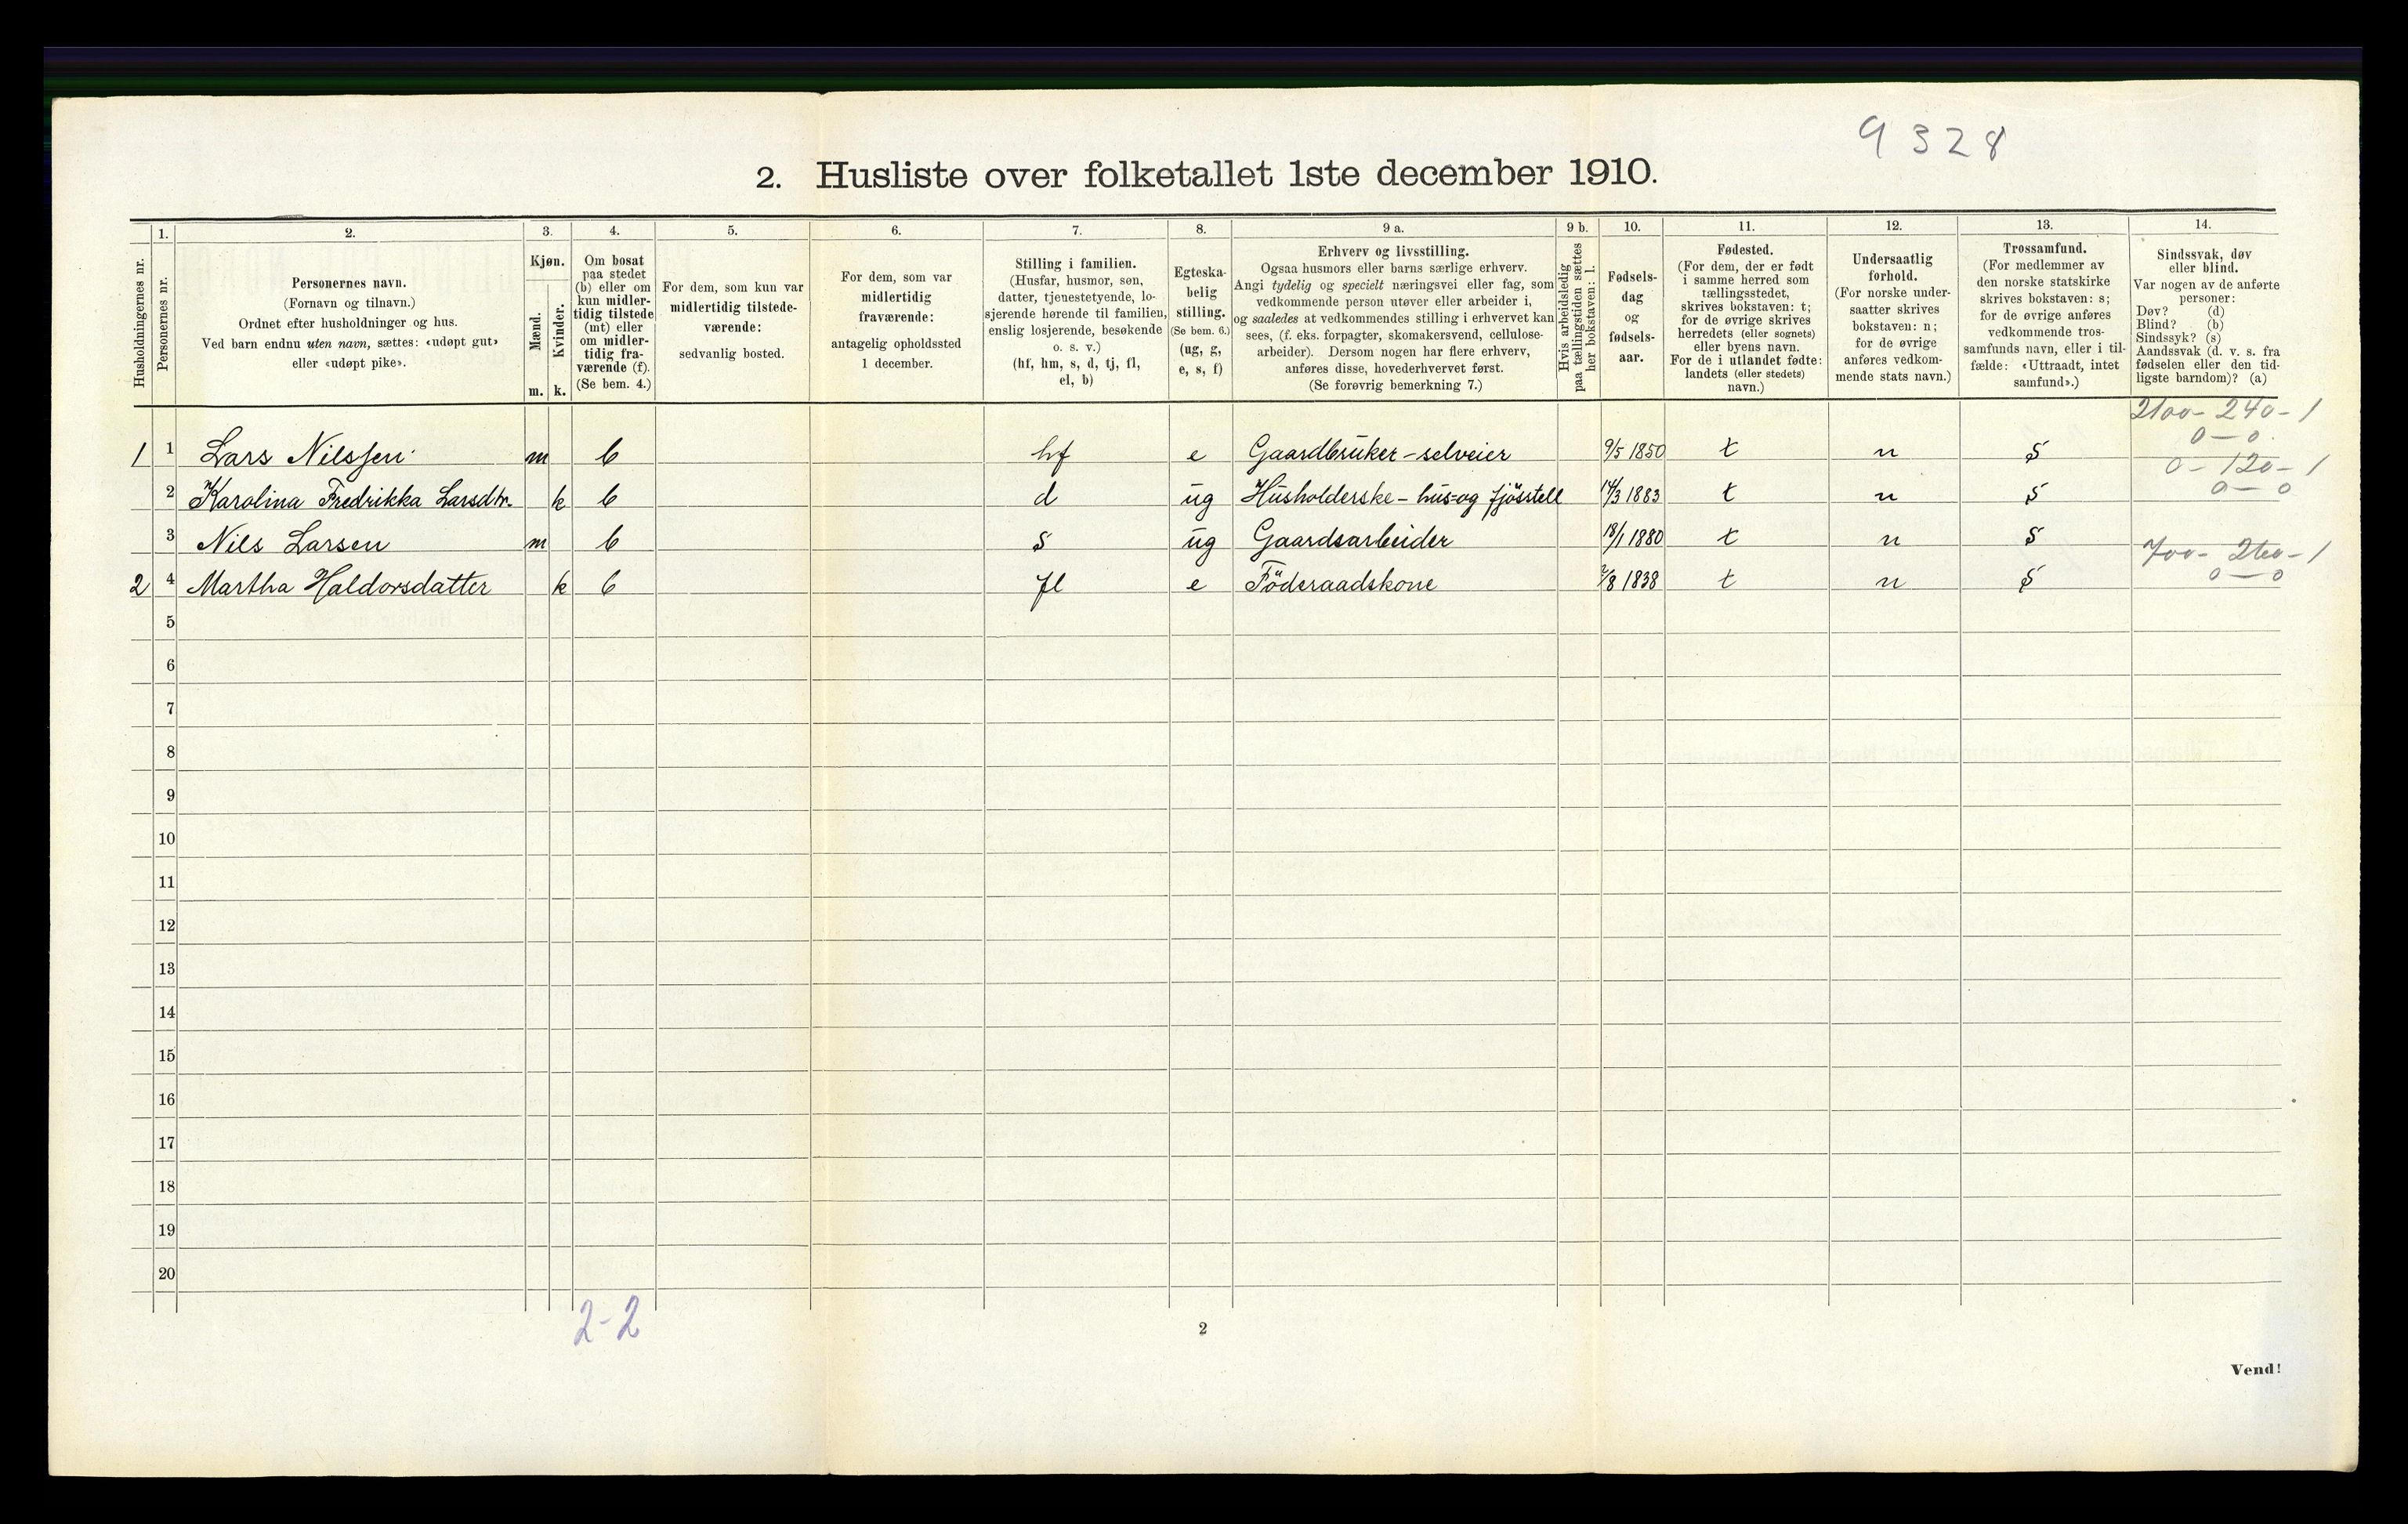 9328
2. Husliste over folketallet 1ste december 1910.
Husholdningernes nr.
1. Personernes nr.
2. Personernes navn.
(Fornavn og tilnavn.)
Ordnet efter husholdninger og hus.
Ved barn endnu uten navn, sættes: «udøpt gut»
eller «udøpt pike».
3. Kjøn.
Mænd. m.
Kvinder. k.
4. Om bosat
paa stedet
(b) eller om
kun midler-
tidig tilstede
(mt) eller
om midler-
tidig fra-
værende (f).
(Se bem. 4.)
5. For dem, som kun var
midlertidig tilstede-
værende:
sedvanlig bosted.
6. For dem, som var
midlertidig
fraværende:
antagelig opholdssted
1 december.
7. Stilling i familien.
(Husfar, husmor, søn,
datter, tjenestetyende, lo-
sjerende hørende til familien,
enslig losjerende, besøkende
o. s. v.)
(hf, hm, s, d, tj, fl,
el, b)
8. Egteska-
belig
stilling.
(Se bem. 6.)
(ug, g,
e, s, f)
9 a. Erhverv og livsstilling.
Ogsaa husmors eller barns særlige erhverv.
Angi tydelig og specielt næringsvei eller fag, som
vedkommende person utøver eller arbeider i,
og saaledes at vedkommendes stilling i erhvervet kan
sees, (f. eks. forpagter, skomakersvend, cellulose-
arbeider). Dersom nogen har flere erhverv,
anføres disse, hovederhvervet først.
(Se forøvrig bemerkning 7.)
9 b. Hvis arbeidsledig
paa tællingstiden sættes
her bokstaven: l.
10. Fødsels-
dag
og
fødsels-
aar.
11. Fødested.
(For dem, der er født
i samme herred som
tællingsstedet,
skrives bokstaven: t;
for de øvrige skrives
herredets (eller sognets)
eller byens navn.
For de i utlandet fødte:
landets (eller stedets)
navn.)
12. Undersaatlig
forhold.
(For norske under-
saatter skrives
bokstaven: n;
for de øvrige
anføres vedkom-
mende stats navn.)
13. Trossamfund.
(For medlemmer av
den norske statskirke
skrives bokstaven: s;
for de øvrige anføres
vedkommende tros-
samfunds navn, eller i til-
fælde: «Uttraadt, intet
samfund».)
14. Sindssvak, døv
eller blind.
Var nogen av de anførte
personer:
Døv? (d)
Blind? (b)
Sindssyk? (s)
Aandssvak (d. v. s. fra
fødselen eller den tid-
ligste barndom)? (a)
2100- 240-1
0-0.
1 1 Lars Nilssen m b hf e Gaardbruker - selveier 9/5 1850 t n s
0- 120-1
0-0
2 Karolina Fredrikka Larsdtr. k b d ug Husholderske - hus- og fjösstell 14/3 1883 t n s
3 Nils Larsen m b s ug Gaardsarbeider 18/1 1880 t n s
0-0
2 4 Martha Haldorsdatter k b fl e Föderaadskone 2/8 1838 t n s
5
6
7
8
9
10
11
12
13
14
15
16
17
18
19
20
2-2
2
Vend!